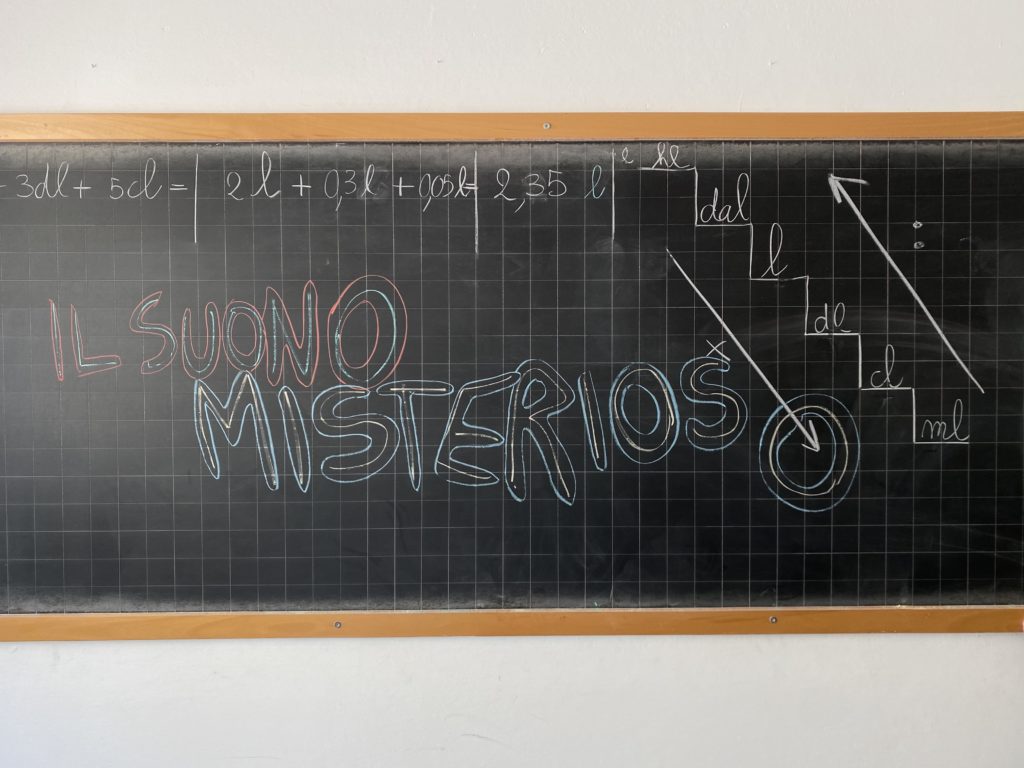 3dl + 5cl = | 2 l + 0,3 l + 0,05 l = | 2,35 l |
hl
dal
l
dl
cl
ml
:
x
IL SUONO
MISTERIOSO